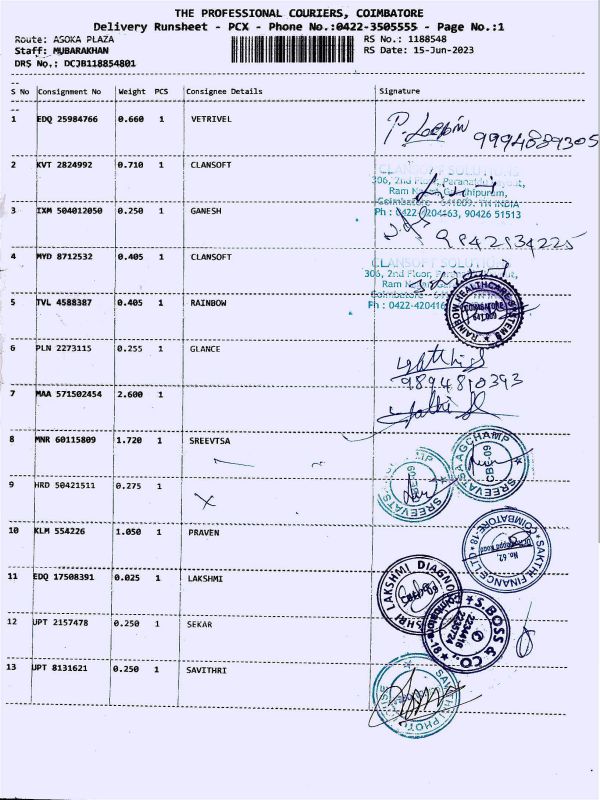 THE PROFESSIONAL COURIERS, COIMBATORE
Delivery Runsheet - PCX - Phone No.:0422-3505555 - Page No.:1
Route: ASOKA PLAZA RS No.: 1188548
Staff: MUBARAKHAN RS Date: 15-Jun-2023
DRS No.: DCJB118854801
S No Consignment No Weight PCS Consignee Details Signature
1 EDQ 25984766 0.660 1 VETRIVEL
9994889305
2 KVT 2824992 0.710 1 CLANSOFT
CLANSOFT SOLUTIONS
306, 2nd Floor,
Coimbatore - 641009. TN INDIA
Ph : 0422-4204163, 90426 51513
3 IXM 504012050 0.250 1 GANESH
9842834225
4 MYD 8712532 0.405 1 CLANSOFT
CLANSOFT SOLUTIONS
306, 2nd Floor,
Coimbatore
Ph : 0422-420416
5 TVL 4588387 0.405 1 RAINBOW
RAINBOW HEALTHCARE SYSTEMS
COIMBATORE
6 PLN 2273115 0.255 1 GLANCE
9894810393
7 MAA 571502454 2.600 1
8 MNR 60115809 1.720 1 SREEVTSA
SREEVATSA
CBE-09
9 HRD 50421511 0.275 1
X
10 KLM 554226 1.050 1 PRAVEN
SAKTHI FINANCE LTD
COIMBATORE-18
No. 62,
11 EDQ 17508391 0.025 1 LAKSHMI
SHRI LAKSHMI DIAGNO
12 UPT 2157478 0.250 1 SEKAR
S. BOSS & CO.,
2234416
2235724
Coimbatore-18
13 UPT 8131621 0.250 1 SAVITHRI
PHOTO